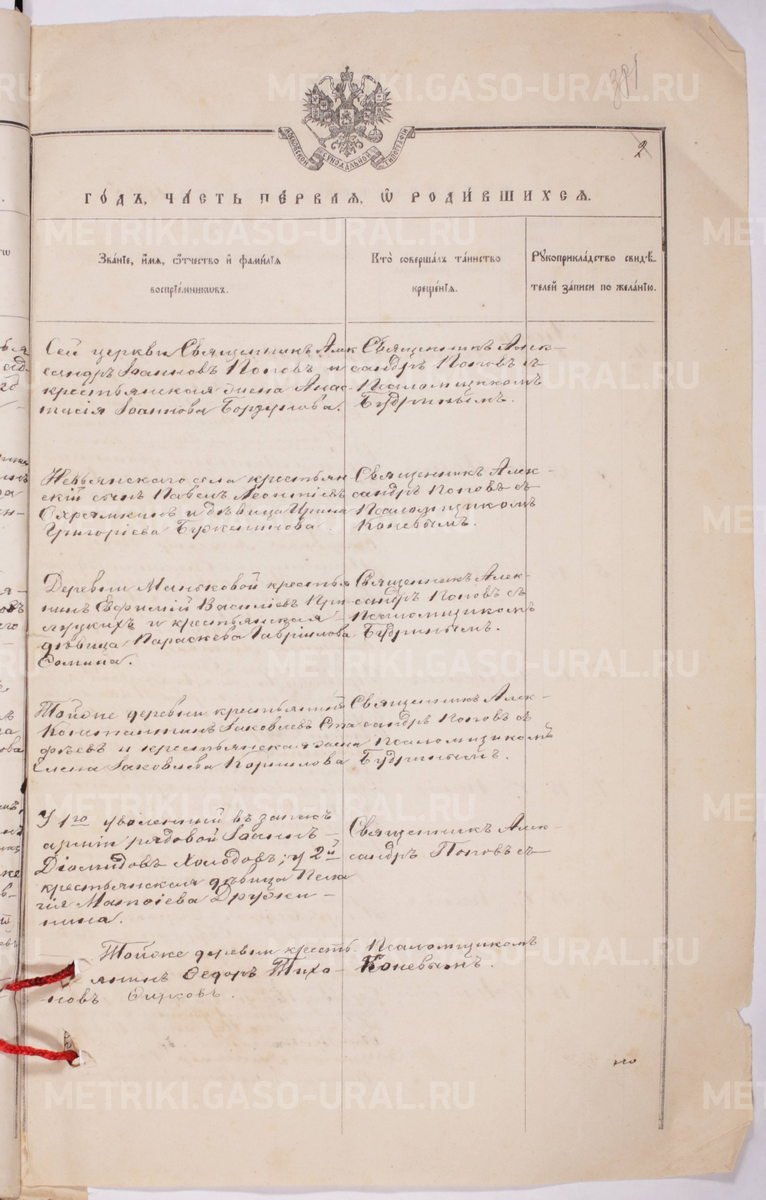 391
2
МОСКОВСКОЙ СѴНОДАЛЬНОЙ ТИПОГРАФІИ
ГО́ДЪ, ЧА́СТЬ ПЕ́РВАЯ, Ѡ҆ РОДИ́ВШИХСЯ.
Зва́нїе, и҆́мя, ѻ҆́тчество и҆ фами́лїѧ
воспрїе́мникѡвъ.
Кто̀ соверша́лъ та́инство
креще́нїѧ.
Рꙋкоприкла́дство свидѣ́-
телей за́писи по жела́нїю.
Сей церкви Священникъ Алек
сандръ Іоанновъ Поповъ и
крестьянская жена Анас-
тасія Іоаннова
Священникъ Алек-
сандръ Поповъ съ
Псаломщикомъ
Будринымъ.
Невьянскаго села крестьян
скій сынъ Павелъ Леонтіевъ
и дѣвица Ирина
Григоріева
Священникъ Алек-
сандръ Поповъ съ
Псаломщикомъ
Коневымъ.
Деревни Маньковой крестья
нинъ Евфимій Василіевъ При
луцкихъ и крестьянская
дѣвица Параскева Гавріилова
Сомина.
Священникъ Алек-
сандръ Поповъ съ
Псаломщикомъ
Будринымъ.
Тойже деревни крестьянинъ
Константинъ Іаковлевъ Ста
фѣевъ и крестьянская жена
Елена Іаковлева Корнилова
Священникъ Алек-
сандръ Поповъ съ
Псаломщикомъ
Будринымъ.
У 1го уволенный въ запасъ
арміи рядовой Іоаннъ
Діомидовъ Холодовъ; у 2й
крестьянская дѣвица Пела
гія Матѳіева Дружи-
нина.
Священникъ Алек-
сандръ Поповъ съ
Тойже деревни кресть-
янинъ Ѳедоръ Тихо-
новъ Ѳирсовъ.
Псаломщикомъ
Коневымъ.
METRIKI.GASO-URAL.RU